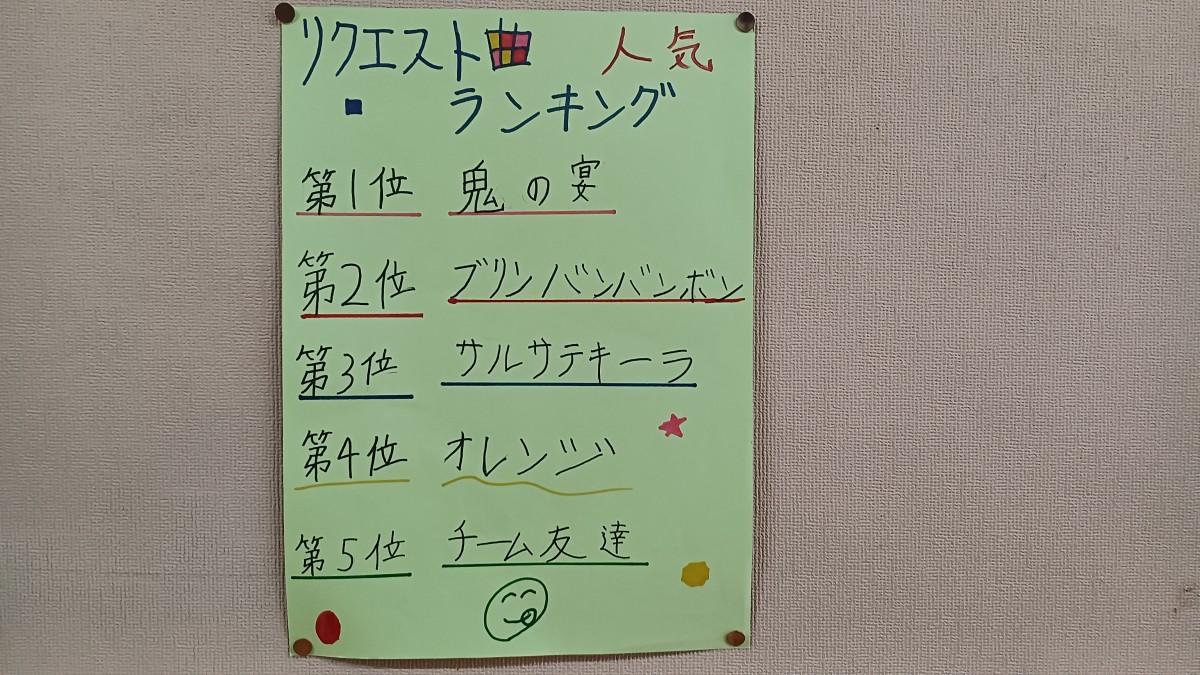 リクエスト曲 人気
ランキング
第1位 鬼の宴
第2位 ブリンバンバンボン
第3位 サルサテキーラ
第4位 オレンジ
第5位 チーム友達